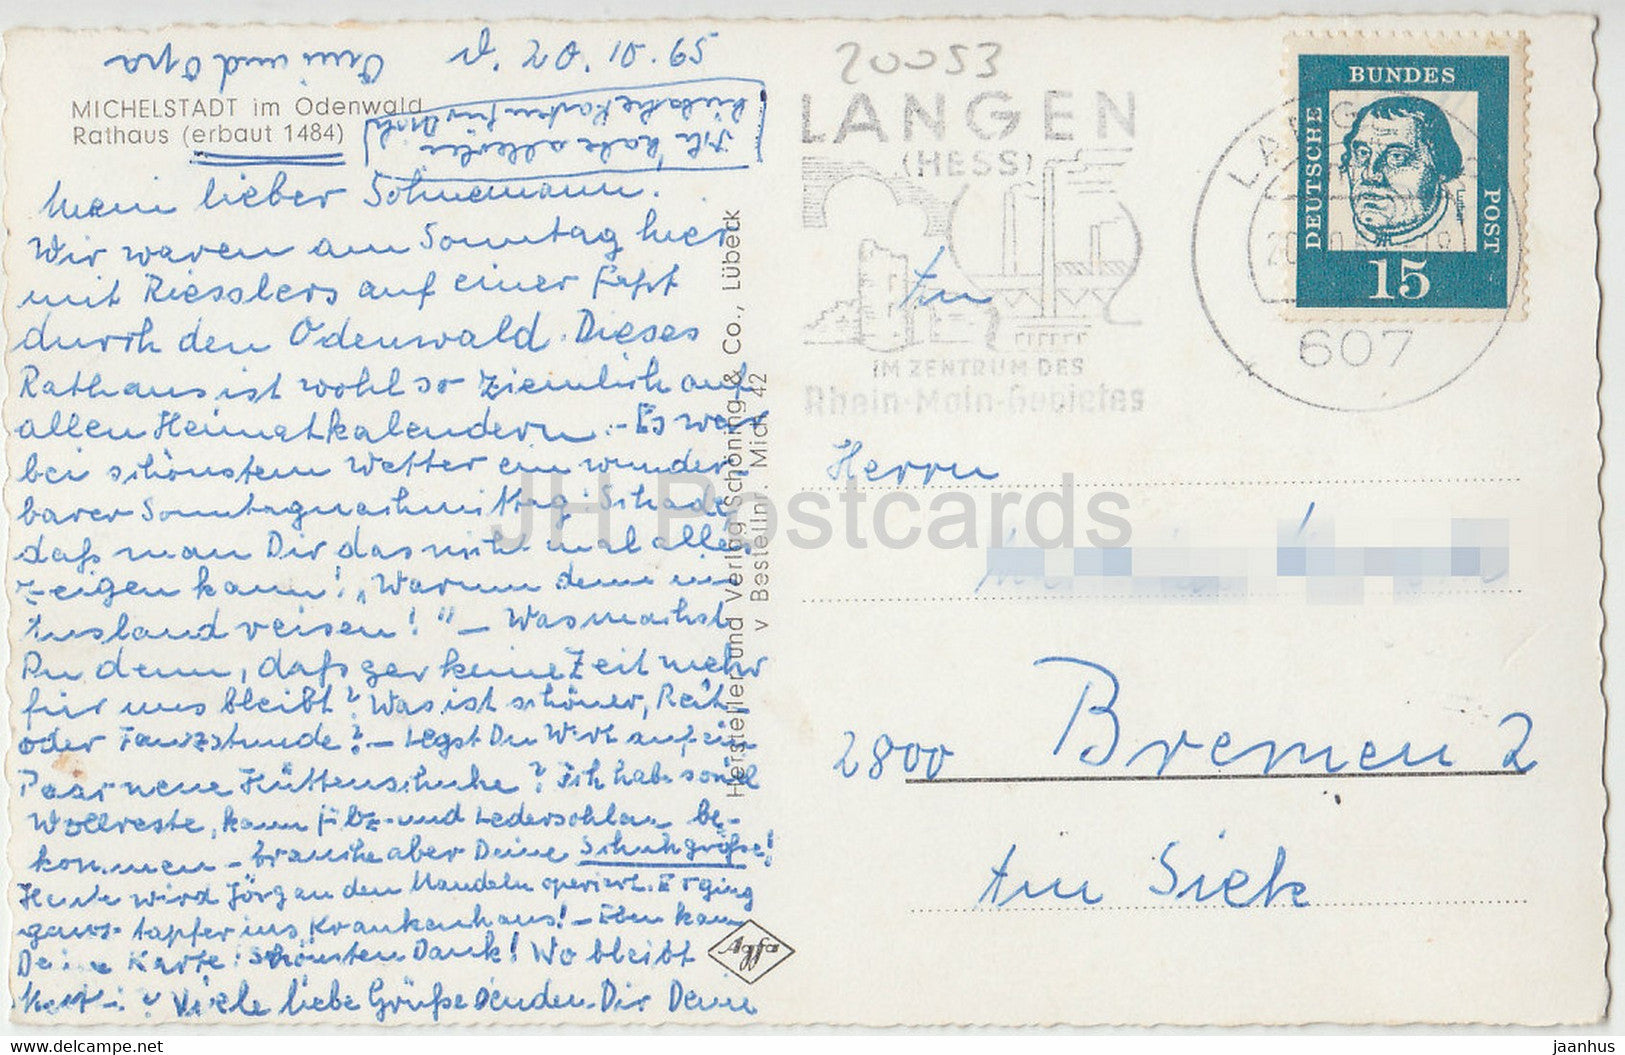 d. 20.10.65
Omi und Opa
MICHELSTADT im Odenwald
Rathaus (erbaut 1484)
Ich habe allerlei
hübsche Karten für Dich!
Mein lieber Sohnemann.
Wir waren am Sonntag hier
mit Riesslers auf einer Fahrt
durch den Odenwald. Dieses
Rathaus ist wohl so ziemlich auf
allen Heimatkalendern. - Es war
bei schönstem Wetter ein wunder-
barer Sonntagnachmittag. Schade,
daß man Dir das nicht mal alles
zeigen kann! „Warum denn ins
Ausland reisen!" - Was machst
Du denn, daß gar keine Zeit mehr
für uns bleibt? Was ist schöner, Reit-
oder Tanzstunde? - Legst Du Wert auf ein
Paar neue Hüttenschuhe? Ich habe soviel
Wollreste, kann Filz- und Ledersohlen be-
kommen - brauche aber Deine Schuhgröße!
Heute wird Jörg an den Mandeln operiert. Er ging
ganz tapfer ins Krankenhaus! - Eben kam
Deine Karte. Schönsten Dank! Wo bleibt
? Viele liebe Grüße senden Dir Deine
Hersteller und Verlag Schöning & Co., Lübeck
v Bestellnr. Mich 42
Agfa
20053
LANGEN
(HESS)
IM ZENTRUM DES
Rhein-Main-Gebietes
LANGEN
607
DEUTSCHE
BUNDES
POST
Luther
15
An
Herrn
2800 Bremen 2
Am Siek
JH Postcards
www.delcampe.net
jaanhus